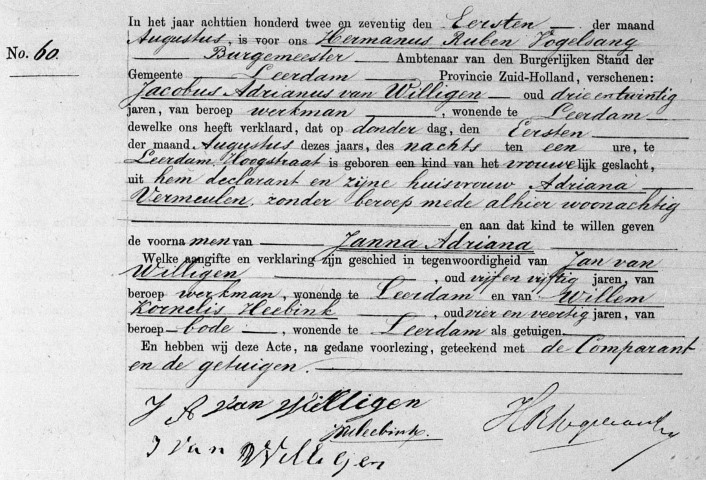 In het jaar achttien honderd twee en zeventig den Eersten der maand
No. 60. Augustus, is voor ons Hermanus Ruben Vogelsang
Burgemeester Ambtenaar van den Burgerlijken Stand der
Gemeente Leerdam Provincie Zuid-Holland, verschenen:
Jacobus Adrianus van Willigen oud drie entwintig
jaren, van beroep werkman, wonende te Leerdam
dewelke ons heeft verklaard, dat op donder dag, den Eersten
der maand Augustus dezes jaars, des nachts ten een ure, te
Leerdam Hoogstraat is geboren een kind van het vrouwelijk geslacht,
uit hem declarant en zijne huisvrouw Adriana
Vermeulen, zonder beroep mede alhier woonachtig
en aan dat kind te willen geven
de voorna men van Janna Adriana
Welke aangifte en verklaring zijn geschied in tegenwoordigheid van Jan van
Willigen, oud vijf en vijftig jaren, van
beroep werkman, wonende te Leerdam en van Willem
Kornelis Heebink, oud vier en veertig jaren, van
beroep bode, wonende te Leerdam als getuigen
En hebben wij deze Acte, na gedane voorlezing, geteekend met de Comparant
en de getuigen.
J A van Willigen
J van Willigen